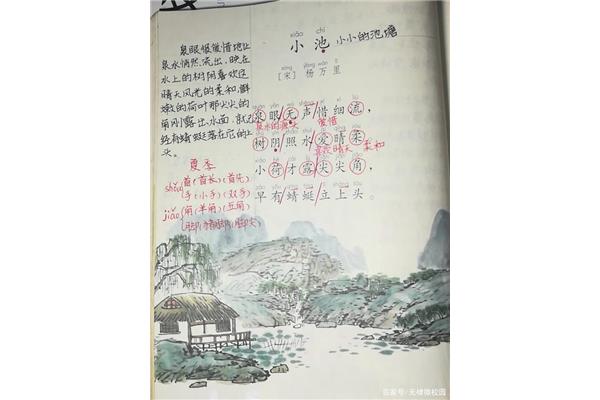 xiǎo chí
小池 小小的池塘
sòng yáng wàn lǐ
[宋] 杨万里
泉眼无声惜细流，
泉水的源头 爱惜
树阴照水爱晴柔
喜欢晴天 柔和
小荷才露尖尖角，
早有蜻蜓立上头。
泉眼很爱惜地让
泉水悄然流出，映在
水上的树阴喜欢这
晴天风光的柔和，鲜
嫩的荷叶那尖尖的
角刚露出水面，就已
经有蜻蜓落在它的上
头。
夏季
shǒu 首(首长)(首先)
手(小手)(双手)
jiǎo 角(羊角)(豆角)
脚
百家号/无棣微校园